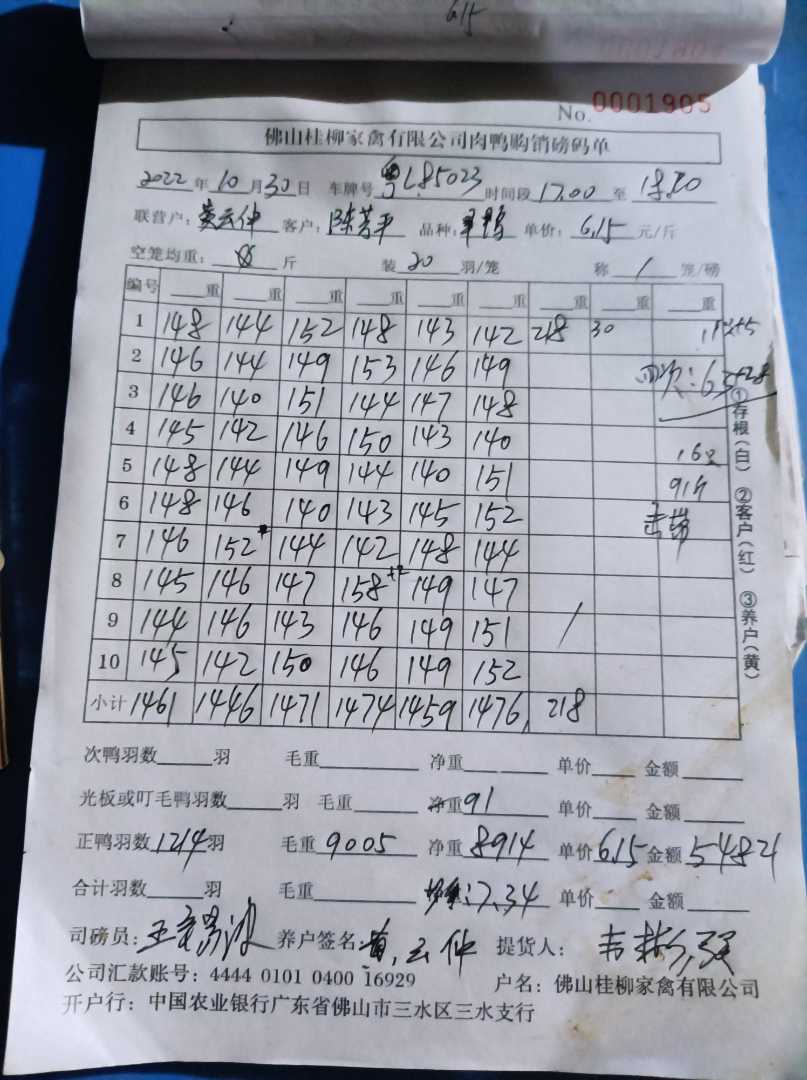 615
No. 0001905
佛山桂柳家禽有限公司肉鸭购销磅码单
2022年10月30日 车牌号 粤L85023 时间段 17.00 至
联营户: 黄云仲 客户: 陈芳平 品种: 单价: 6.15 元/斤
空笼均重: 斤 装 20 羽/笼 称 1 笼/磅
编号 重 重 重 重 重 重 重 重 重
1 148 144 152 148 143 142 218 30
2 146 144 149 153 146 149
3 146 140 151 144 147 148
4 145 142 146 150 143 140
5 148 144 149 144 140 151
91斤
6 148 146 140 143 145 152
7 146 152 144 142 148 144
8 145 146 147 158+2 149 147
9 144 146 143 146 149 151 /
10 145 142 150 146 149 152
小计 1461 1446 1471 1474 1459 1476 218
①存根(白) ②客户(红) ③养户(黄)
次鸭羽数 羽 毛重 净重 单价 金额
光板或叮毛鸭羽数 羽 毛重 净重 91 单价 金额
正鸭羽数 1214 羽 毛重 9005 净重 8914 单价 6.15 金额 54821
合计羽数 羽 毛重 : 7.34 单价 金额
司磅员: 养户签名: 黄云仲 提货人:
公司汇款账号: 4444 0101 0400 16929 户名: 佛山桂柳家禽有限公司
开户行: 中国农业银行广东省佛山市三水区三水支行